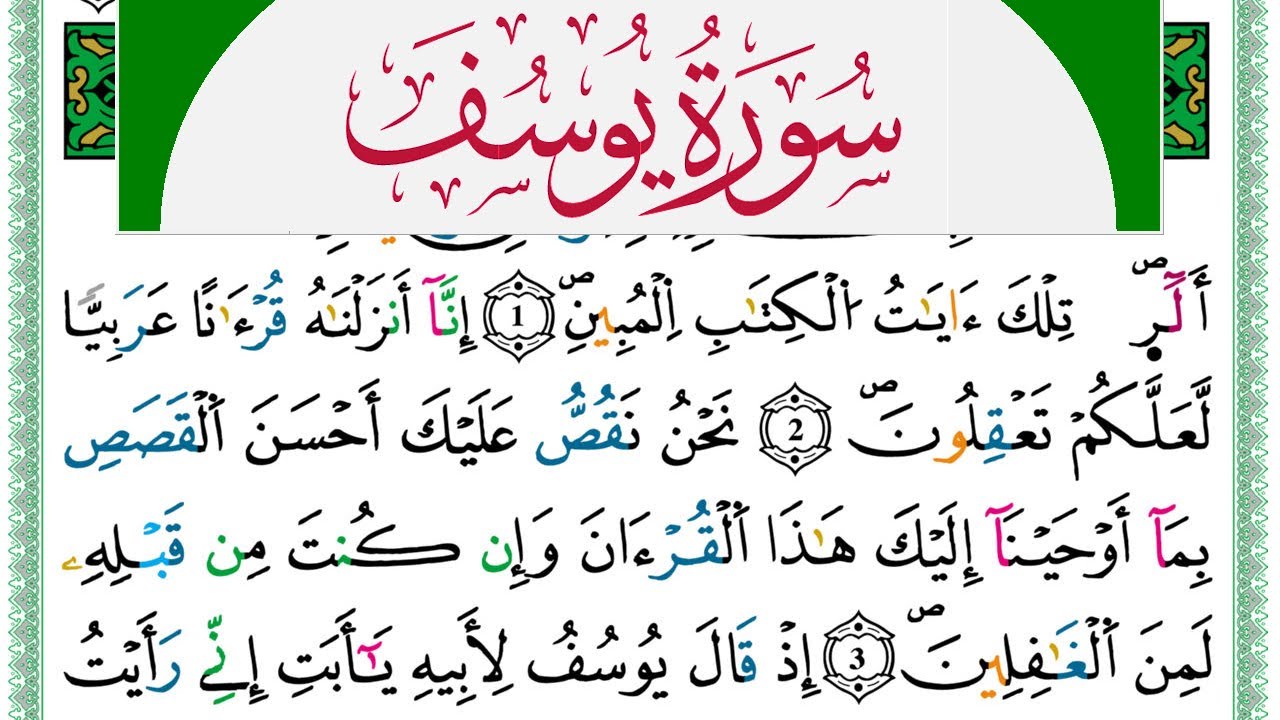 سُورَةُ يُوسُفَ
أَلَٓرۖ تِلْكَ ءَايَٰتُ اُ۬لْكِتَٰبِ اِ۬لْمُبِينِۖ 1 إِنَّآ أَنزَلْنَٰهُ قُرْءَٰناً عَرَبِيّاٗ
لَّعَلَّكُمْ تَعْقِلُونَۖ 2 نَحْنُ نَقُصُّ عَلَيْكَ أَحْسَنَ اَ۬لْقَصَصِ
بِمَآ أَوْحَيْنَآ إِلَيْكَ هَٰذَا اَ۬لْقُرْءَانَ وَإِن كُنتَ مِن قَبْلِهِۦ
لَمِنَ اَ۬لْغَٰفِلِينَۖ 3 إِذْ قَالَ يُوسُفُ لِأَبِيهِ يَٰٓأَبَتِ إِنِّے رَأَيْتُ